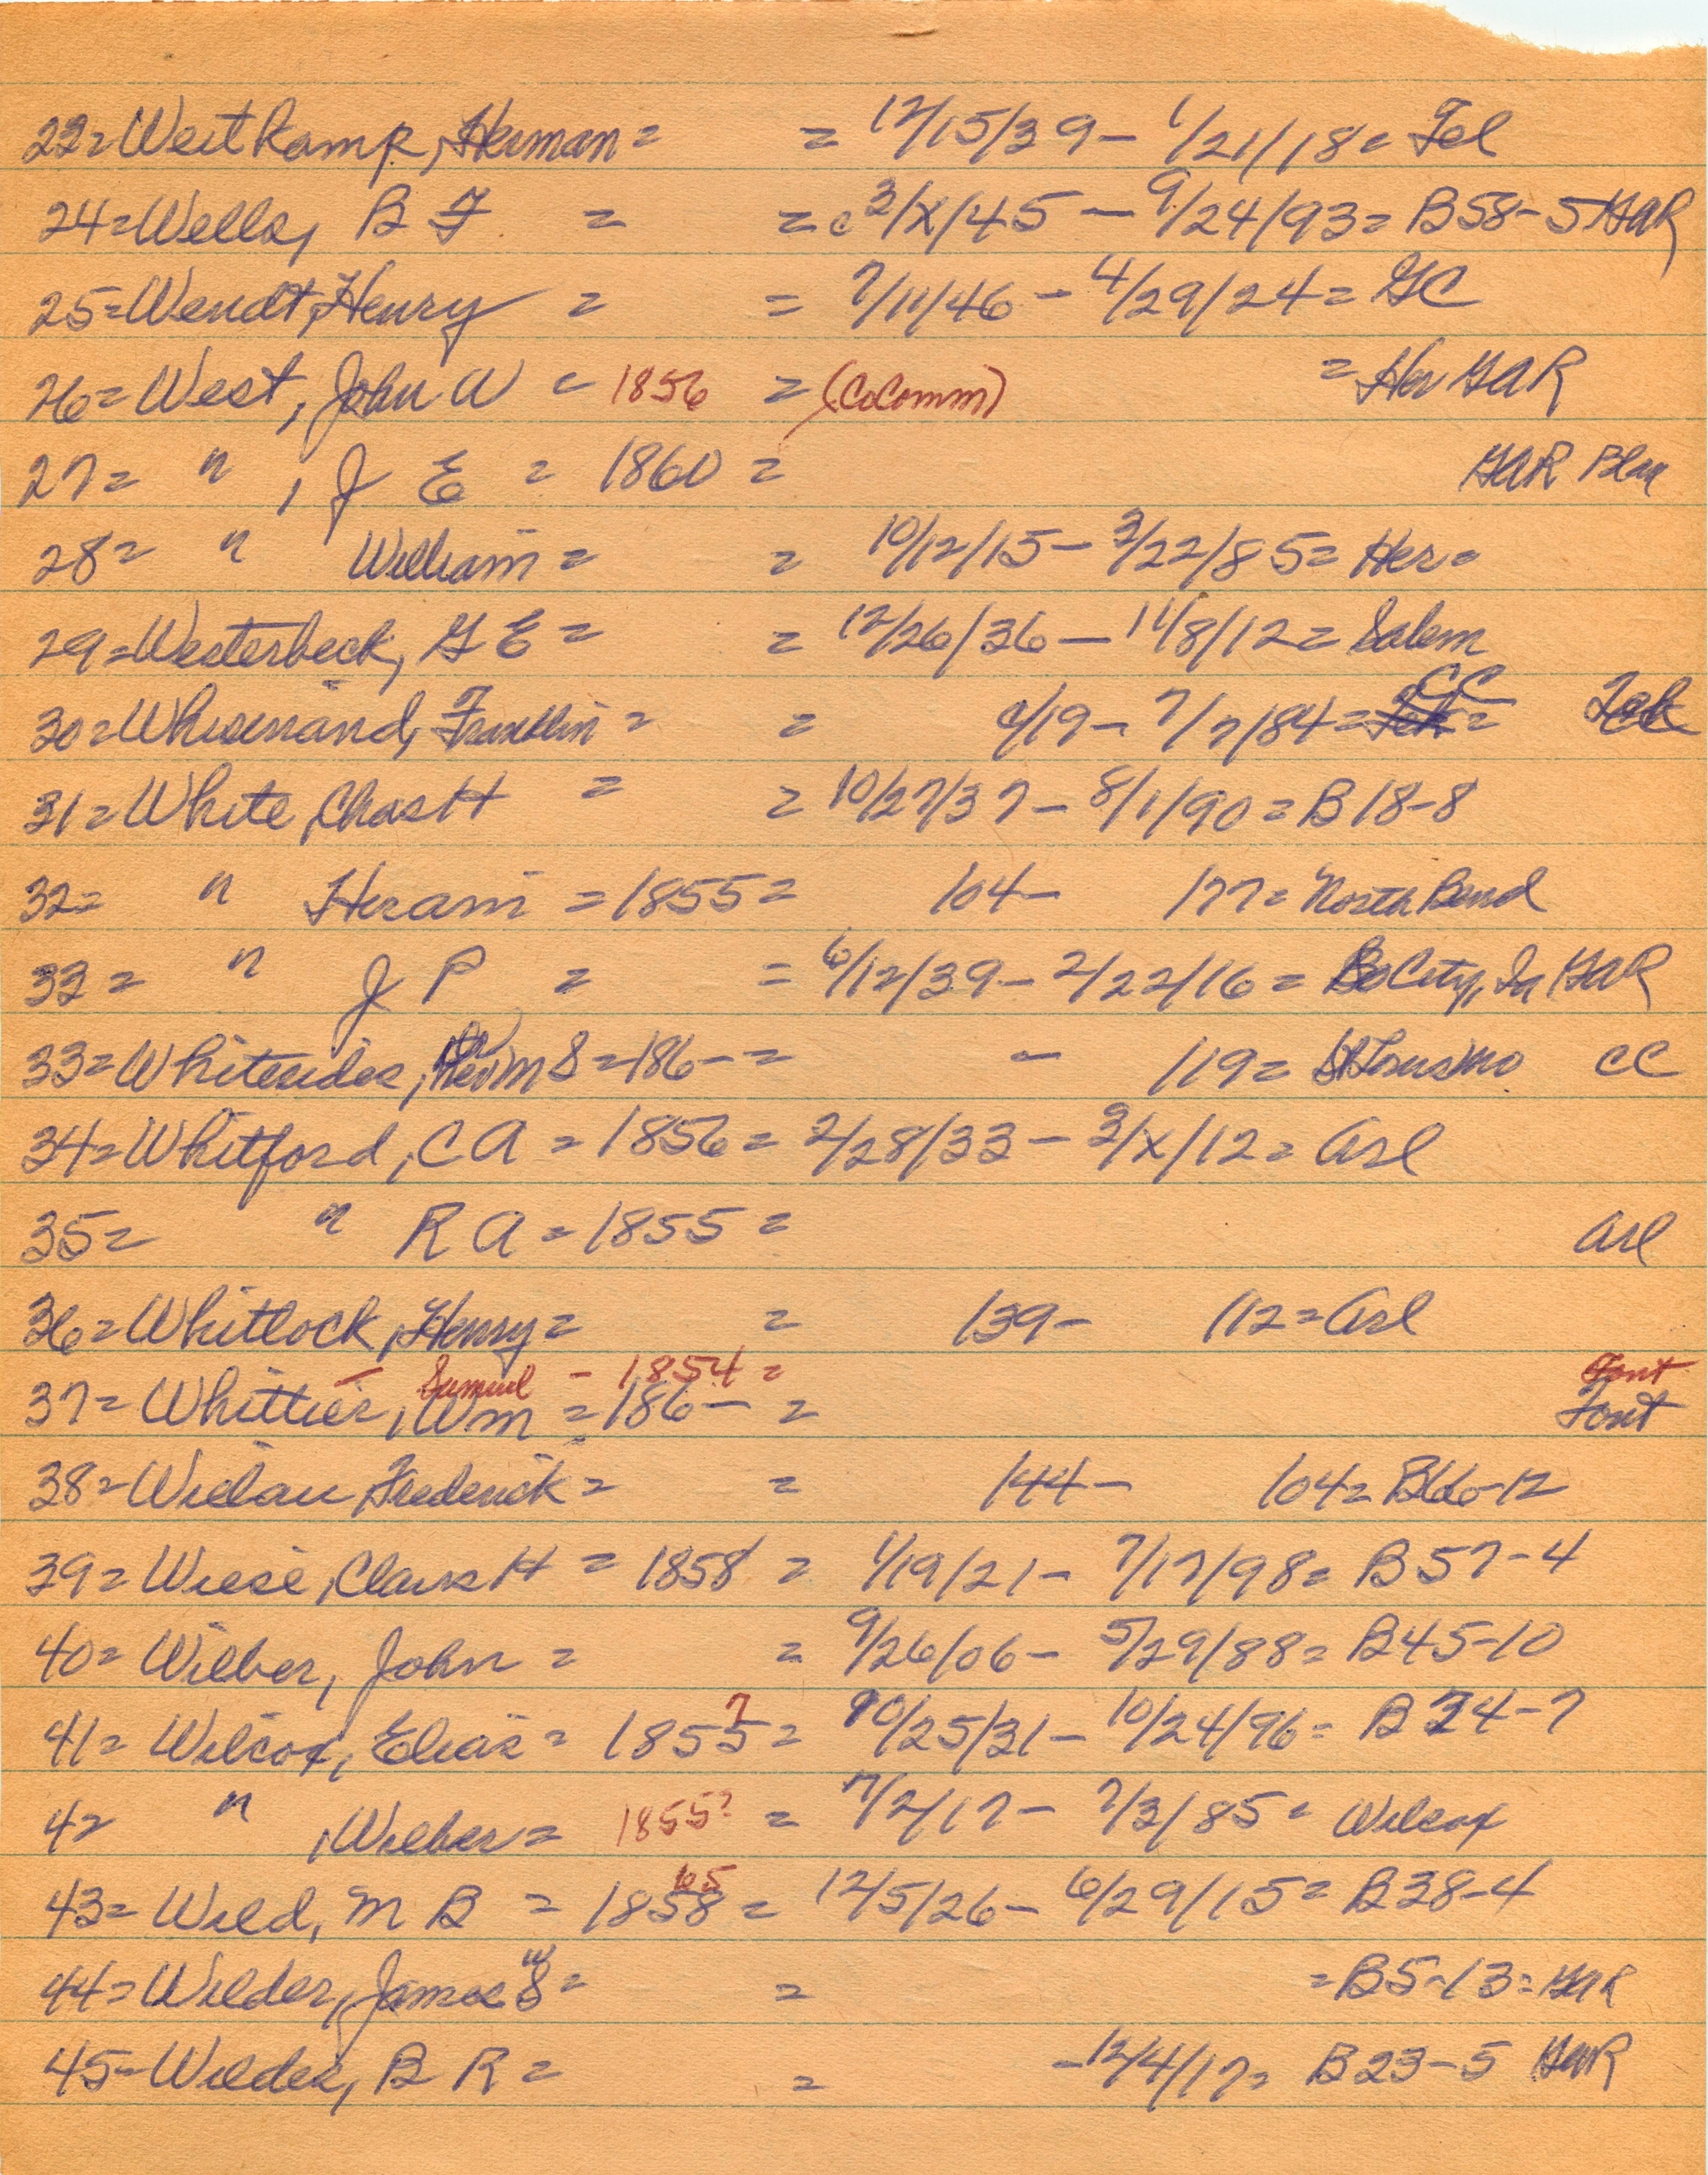 22=Weitkamp, Herman = = 12/15/39 - 1/21/18 = Tel
24=Wells, B F = = c 3/X/45 - 9/24/93 = B58-5 GAR
25=Wendt, Henry = = 7/11/46 - 4/29/24 = GC
26=West, John W = 1856 = (CoComm) = Her GAR
27= " , J E = 1860 = GAR Bla
28= " William = = 10/12/15 - 3/22/85 = Her =
29=Westerbeck, G E = = 12/26/36 - 11/8/12 = Salem
30=Whisenand, Franklin = = c/19 - 7/7/84 = CC = Tek
31=White, Chas H = = 10/27/37 - 8/1/90 = B18-8
32= " Hiram = 1855 = 104 - 177 = North Bend
33= " J P = = 6/12/39 - 2/22/16 = City, Ia GAR
33=Whitesides, Wm S = 186- = - 119 = St Louis Mo CC
34=Whitford, C A = 1856 = 2/28/33 - 3/X/12 = Arl
35= " R A = 1855 = Arl
36=Whitlock, Henry = = 139 - 112 = Arl
- Samuel - 1854 = Font
37=Whittier, Wm = 186- = Font
38=Wielau, Frederick = = 144 - 104 = B66-12
39=Wiese, Claus H = 1858 = 1/19/21 - 7/17/98 = B57-4
40=Wilber, John = = 9/26/06 - 5/29/88 = B45-10
41=Wilcox, Elias = 1855 7 = 10/25/31 - 10/24/96 = B24-7
42 " , Wilber = 1855? = 7/2/17 - 7/3/85 = Wilcox
43=Wild, M B = 1858 65 = 12/5/26 - 6/29/15 = B38-4
44=Wilder, James W S = = = B5-13 = GAR
45=Wilder, B R = = - 12/4/17 = B23-5 GAR